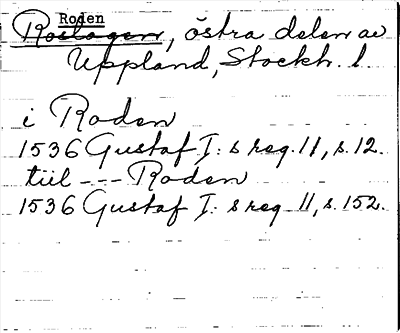 Roden
Roslagen, östra delen av
Uppland, Stockh. l.
i Roden
1536 Gustaf I:s reg. 11, s. 12.
tiil --- Roden
1536 Gustaf I:s reg 11, s. 152.